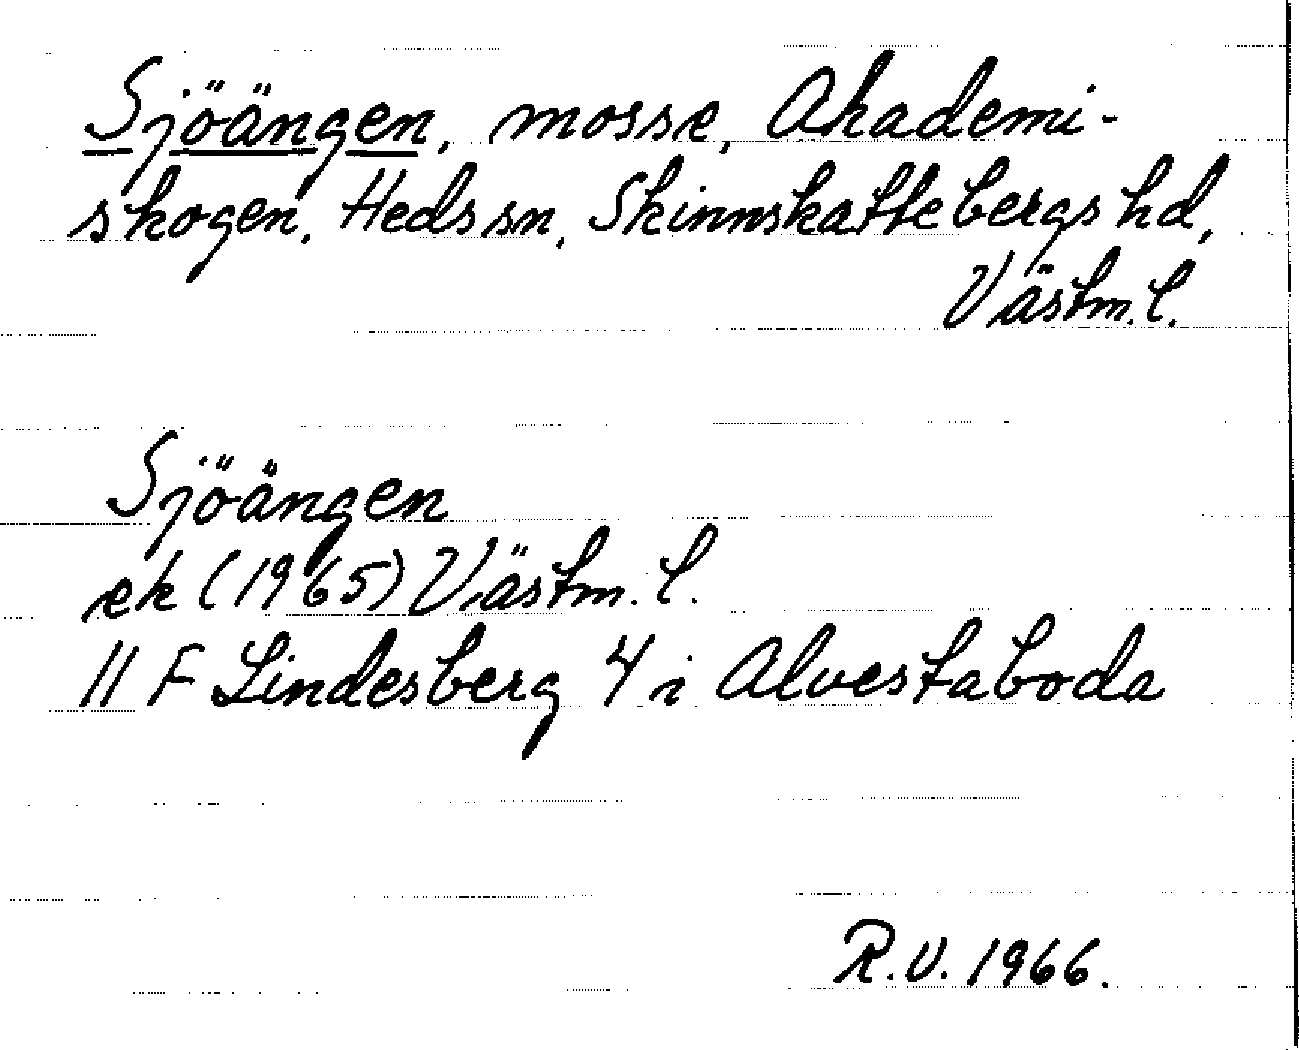 Sjöängen, mosse, Akademi-
skogen, Heds sn, Skinnskattebergs hd,
Västm. l.
Sjöängen
ek (1965) Västm. l.
11 F Lindesberg 4 i Alvestaboda
R.V. 1966.